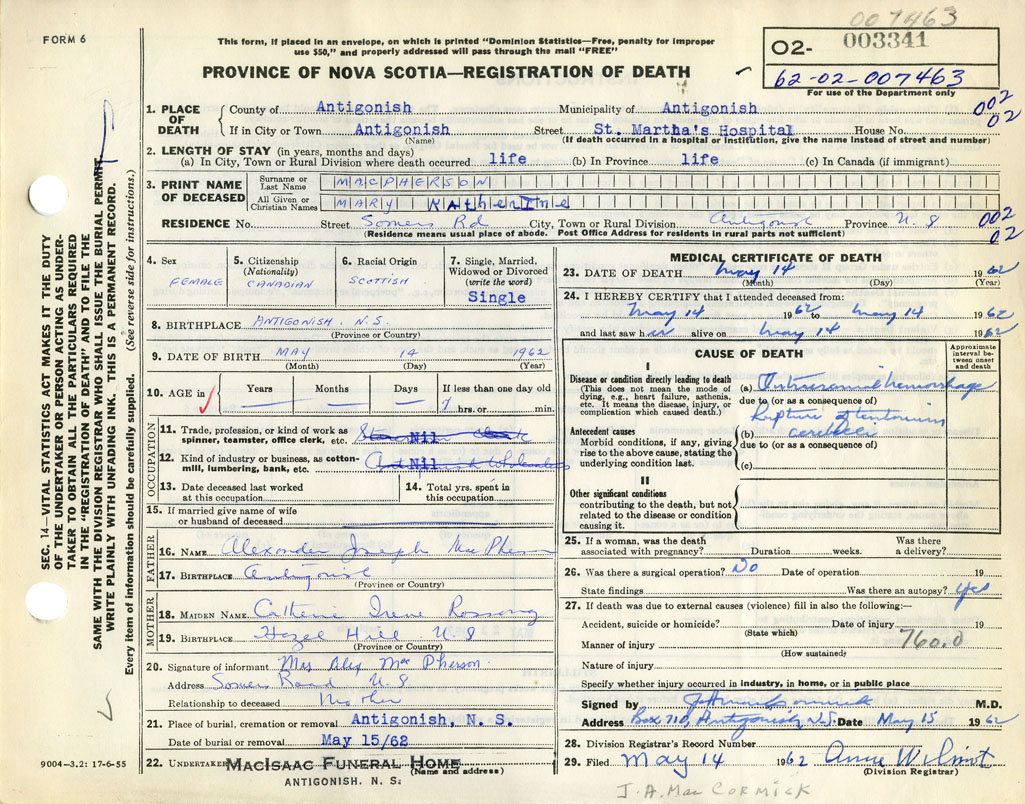 007463
FORM 6
This form, if placed in an envelope, on which is printed "Dominion Statistics—Free, penalty for improper
use $50," and properly addressed will pass through the mail "FREE"
O2- 003341
PROVINCE OF NOVA SCOTIA—REGISTRATION OF DEATH
62-02-007463
For use of the Department only
1. PLACE OF DEATH
County of Antigonish Municipality of Antigonish 002
02
If in City or Town Antigonish Street St. Martha's Hospital House No.
(Name) (If death occurred in a hospital or institution, give the name instead of street and number)
2. LENGTH OF STAY (in years, months and days)
(a) In City, Town or Rural Division where death occurred life (b) In Province life (c) In Canada (if immigrant)
3. PRINT NAME OF DECEASED
Surname or Last Name MACPHERSON
All Given or Christian Names MARY KAtherIne
RESIDENCE No. Street Somers Rd City, Town or Rural Division Antigonish Province N S 002
02
(Residence means usual place of abode. Post Office Address for residents in rural parts not sufficient)
4. Sex
FEMALE
5. Citizenship
(Nationality)
CANADIAN
6. Racial Origin
SCOTTISH
7. Single, Married,
Widowed or Divorced
(write the word)
Single
8. BIRTHPLACE ANTIGONISH. N.S.
(Province or Country)
9. DATE OF BIRTH MAY 14 1962
(Month) (Day) (Year)
10. AGE in
Years Months Days If less than one day old
7 hrs. or min.
OCCUPATION
11. Trade, profession, or kind of work as
spinner, teamster, office clerk, etc. Nil
12. Kind of industry or business, as cotton-
mill, lumbering, bank, etc. Nil
13. Date deceased last worked
at this occupation
14. Total yrs. spent in
this occupation
15. If married give name of wife
or husband of deceased
FATHER
16. NAME Alexander Joseph MacPherson
17. BIRTHPLACE Antigonish
(Province or Country)
MOTHER
18. MAIDEN NAME Catherine Irene
19. BIRTHPLACE Hazel Hill N S
(Province or Country)
20. Signature of informant Mrs Alex MacPherson
Address Somers Road N.S
Relationship to deceased Mother
21. Place of burial, cremation or removal Antigonish, N. S.
Date of burial or removal May 15/62
22. UNDERTAKER MACISAAC FUNERAL HOME
(Name and address)
ANTIGONISH. N. S.
9004—3.2: 17-6-55
SEC. 14—VITAL STATISTICS ACT MAKES IT THE DUTY
OF THE UNDERTAKER OR PERSON ACTING AS UNDER-
TAKER TO OBTAIN ALL THE PARTICULARS REQUIRED
IN THE "REGISTRATION OF DEATH" AND TO FILE THE
SAME WITH THE DIVISION REGISTRAR WHO SHALL ISSUE THE BURIAL PERMIT.
WRITE PLAINLY WITH UNFADING INK. THIS IS A PERMANENT RECORD.
Every item of information should be carefully supplied. (See reverse side for instructions.)
MEDICAL CERTIFICATE OF DEATH
23. DATE OF DEATH May 14 1962
(Month) (Day) (Year)
24. I HEREBY CERTIFY that I attended deceased from:
May 14 1962 to May 14 1962
and last saw her alive on May 14 1962
CAUSE OF DEATH
Approximate
interval be-
tween onset
and death
I
Disease or condition directly leading to death
(This does not mean the mode of
dying, e.g., heart failure, asthenia,
etc. It means the disease, injury, or
complication which caused death.)
(a) Intracranial hemorrhage
due to (or as a consequence of)
Antecedent causes
Morbid conditions, if any, giving
rise to the above cause, stating the
underlying condition last.
Rupture of tentorium
(b) cerebelli
due to (or as a consequence of)
(c)
II
Other significant conditions
contributing to the death, but not
related to the disease or condition
causing it.
25. If a woman, was the death
associated with pregnancy? Duration weeks. Was there
a delivery?
26. Was there a surgical operation? No Date of operation 19
State findings Was there an autopsy? Yes
27. If death was due to external causes (violence) fill in also the following:—
Accident, suicide or homicide? Date of injury 19
(State which)
Manner of injury 760.0
(How sustained)
Nature of injury
Specify whether injury occurred in industry, in home, or in public place
Signed by M.D.
Address Box 710, Antigonish, N.S. Date May 15 1962
28. Division Registrar's Record Number
29. Filed May 14 1962 Anne Wilmot
(Division Registrar)
J.A. MacCORMICK